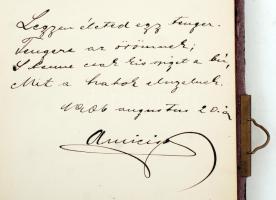 Legyen életed egy tenger.
Tengere az örömnek;
S benne csak kis sziget a bú,
Mit a habok elnyelnek.
augusztus 20.án